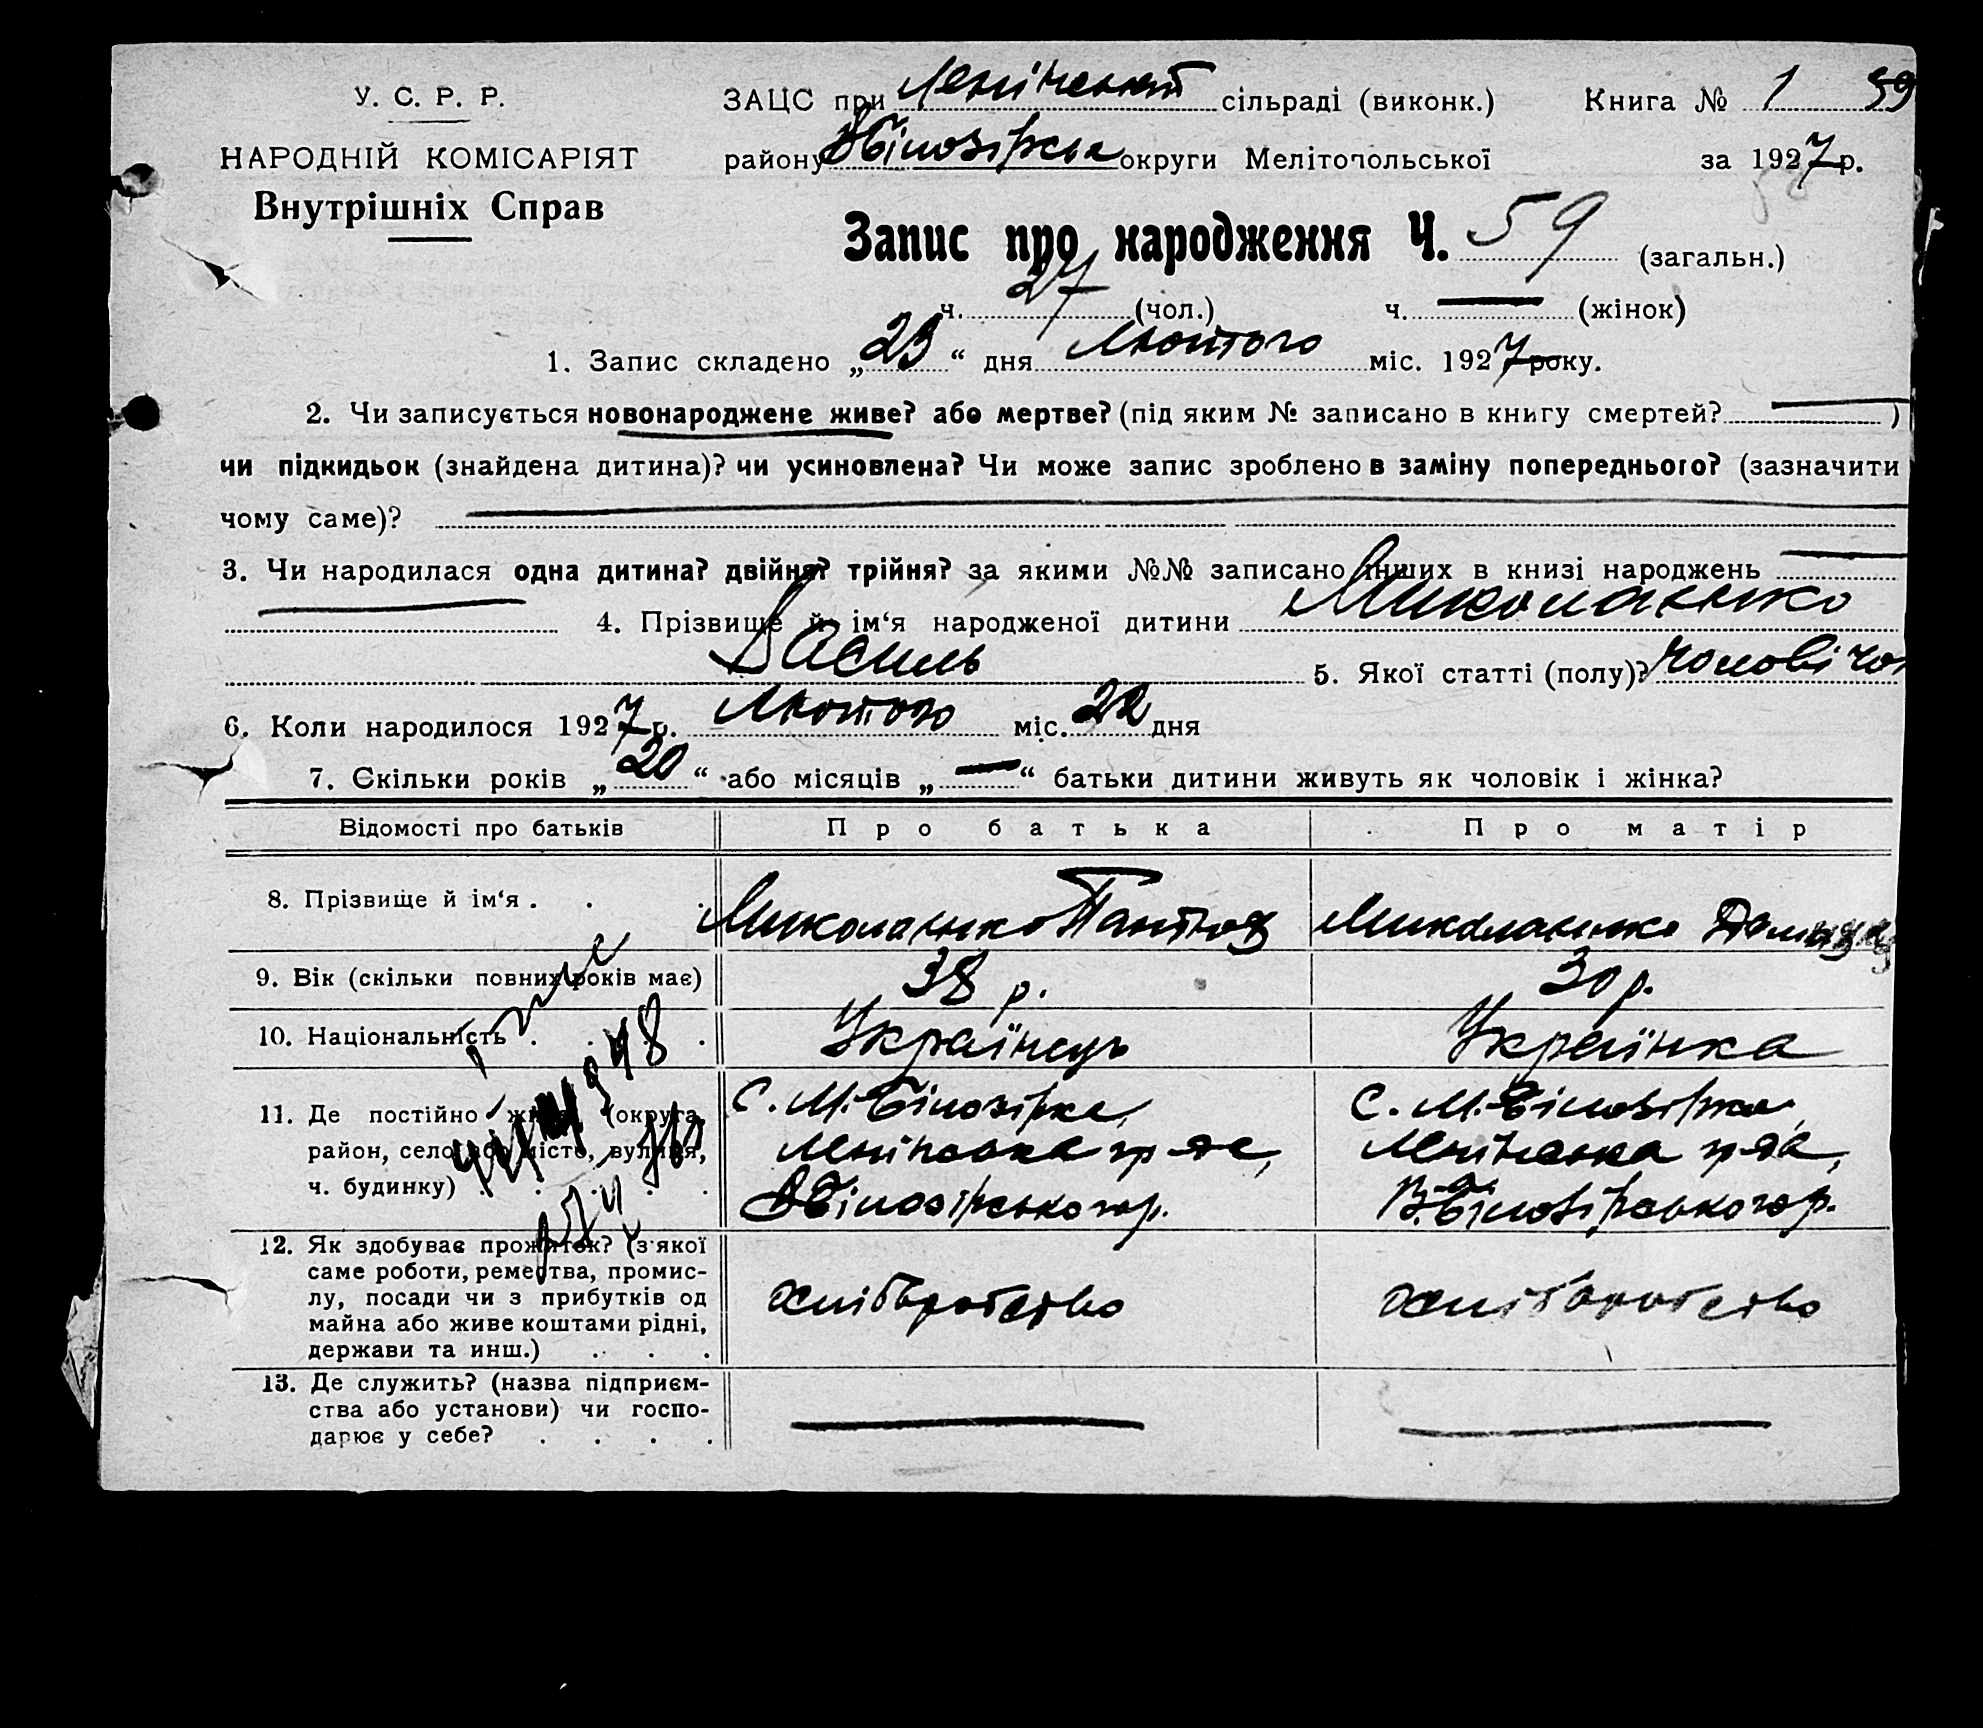 У. С. Р. Р.
НАРОДНІЙ КОМІСАРІЯТ
Внутрішніх Справ
ЗАЦС при Ленінській сільраді (виконк.) Книга № 1 59
району ВБілозірська округи Мелітопольської за 1927 р.
Запис про народження Ч. 59 (загальн.)
ч. 27 (чол.) ч. — (жінок)
1. Запис складено „23“ дня Лютого міс. 1927 року.
2. Чи записується новонароджене живе? або мертве? (під яким № записано в книгу смертей? — )
чи підкидьок (знайдена дитина)? чи усиновлена? Чи може запис зроблено в заміну попереднього? (зазначити
чому саме)? —
3. Чи народилася одна дитина? двійня? трійня? за якими №№ записано інших в книзі народжень —
— 4. Прізвище й ім‘я народженої дитини Миколаенко
Василь 5. Якої статті (полу)? чоловічої
6. Коли народилося 1927 р. Лютого міс. 22 дня
7. Скільки років „20“ або місяців „—“ батьки дитини живуть як чоловік і жінка?
Відомості про батьків Про батька Про матір
8. Прізвище й ім‘я . . . Миколаенко Миколаенко
9. Вік (скільки повних років має) 38 р. 30 р.
10. Національність . . . . Українець Українка
11. Де постійно живе (округа, С. М. Білозірка, С. М. Білозірка,
район, село або місто, вулиця, Ленінська Ленінська
ч. будинку) . . . . . ВБілозірського р. В. Білозірського р.
12. Як здобуває прожиток? (з якої
саме роботи, ремества, промис-
лу, посади чи з прибутків од хліборобство хліборобство
майна або живе коштами рідні,
держави та инш.) . . .
13. Де служить? (назва підприєм-
ства або установи) чи госпо- — —
дарює у себе? . . . .